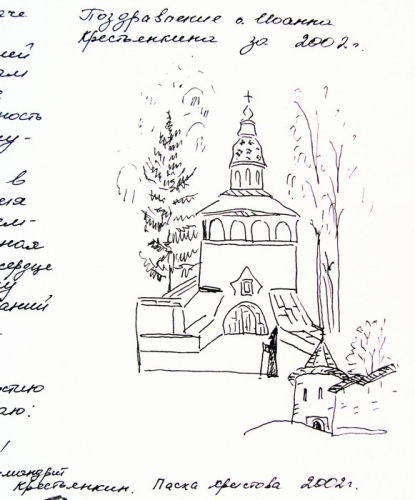 Поздравление о. Иоанна
Крестьянкина за 2002 г.
че
ей
ам
ность
му-
в
ия
ем-
ная
сердце
му
аний
стию
аю:
!
имандрит
Крестьянкин. Пасха Христова 2002 г.